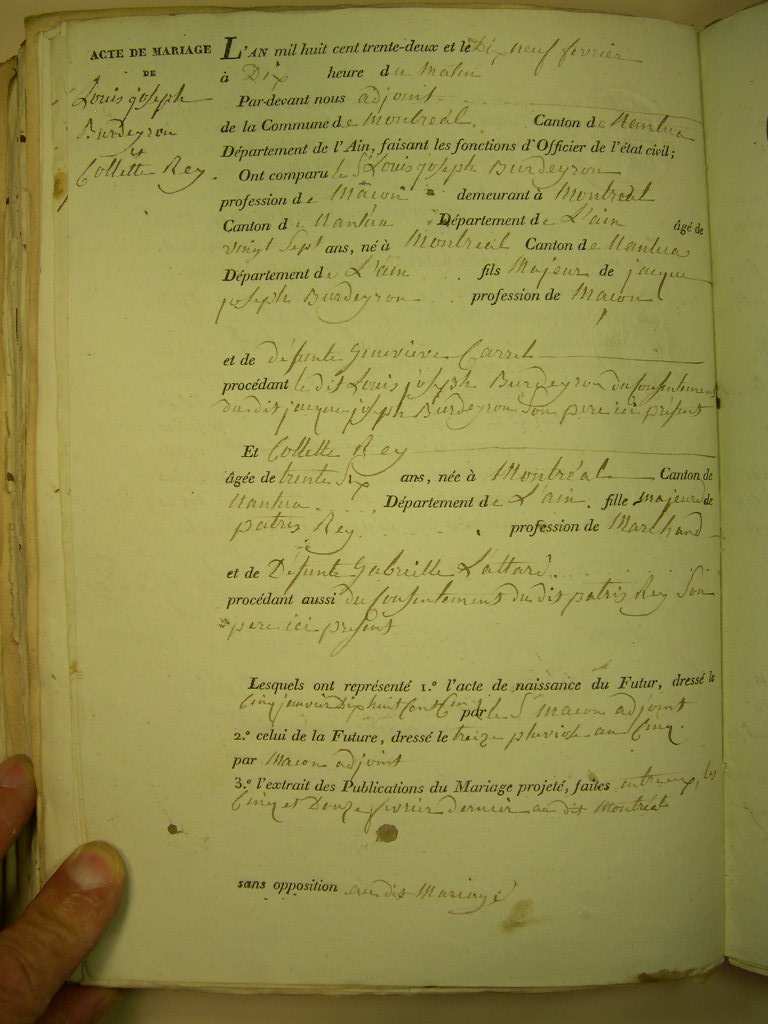 ACTE DE MARIAGE
DE
Louis joseph
Burdeyron
et
Collette Rey.
L'AN mil huit cent trente-deux et le Dix neuf fevrier
à Dix heure du Matin
Par-devant nous adjoint
de la Commune de Montreal. Canton de Nantua
Département de l'Ain, faisant les fonctions d'Officier de l'état civil;
Ont comparu le Sr Louis joseph Burdeyron
profession de Macon demeurant à Montreal
Canton de Nantua Département de L'ain âgé de
vingt Sept ans, né à Montreal Canton de Nantua
Département de L'ain fils Majeur de jacque
joseph Burdeyron profession de Macon
et de défunte Genevieve Carrel
procédant le dit Louis joseph Burdeyron du Consentement
du dit jacque joseph Burdeyron Son pere ici présent
Et Collette Rey
âgée de trente Six ans, née à Montréal Canton de
Nantua. Département de L'ain. fille majeure de
patris Rey profession de Marchand
et de Défunte Gabrielle Lattard.
procédant aussi du Consentement du dit patris Rey Son
pere ici présent
Lesquels ont représenté 1.º l'acte de naissance du Futur, dressé le
Cinq janvier Dix huit Cent Cinq par le Sr Macon adjoint
2.º celui de la Future, dressé le treize pluviose an Cinq.
par Macon adjoint
3.º l'extrait des Publications du Mariage projeté, faites entr'eux, les
Cinq et Douze fevrier dernier au dit Montréal
sans opposition au dit Mariage